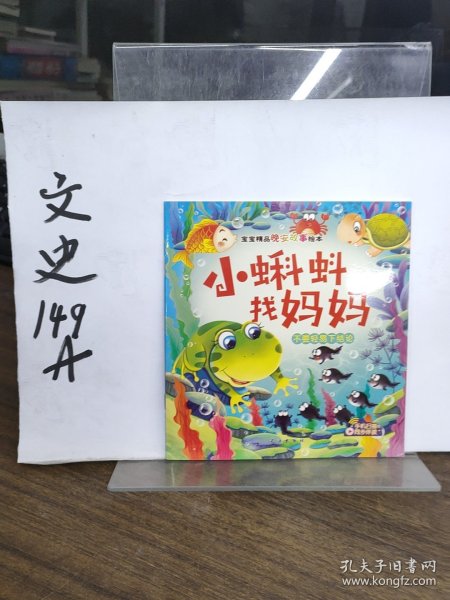 文史
149
A
宝宝精品晚安故事绘本
小蝌蚪
找妈妈
不要轻易下结论
孔夫子旧书网
www.kongfz.com